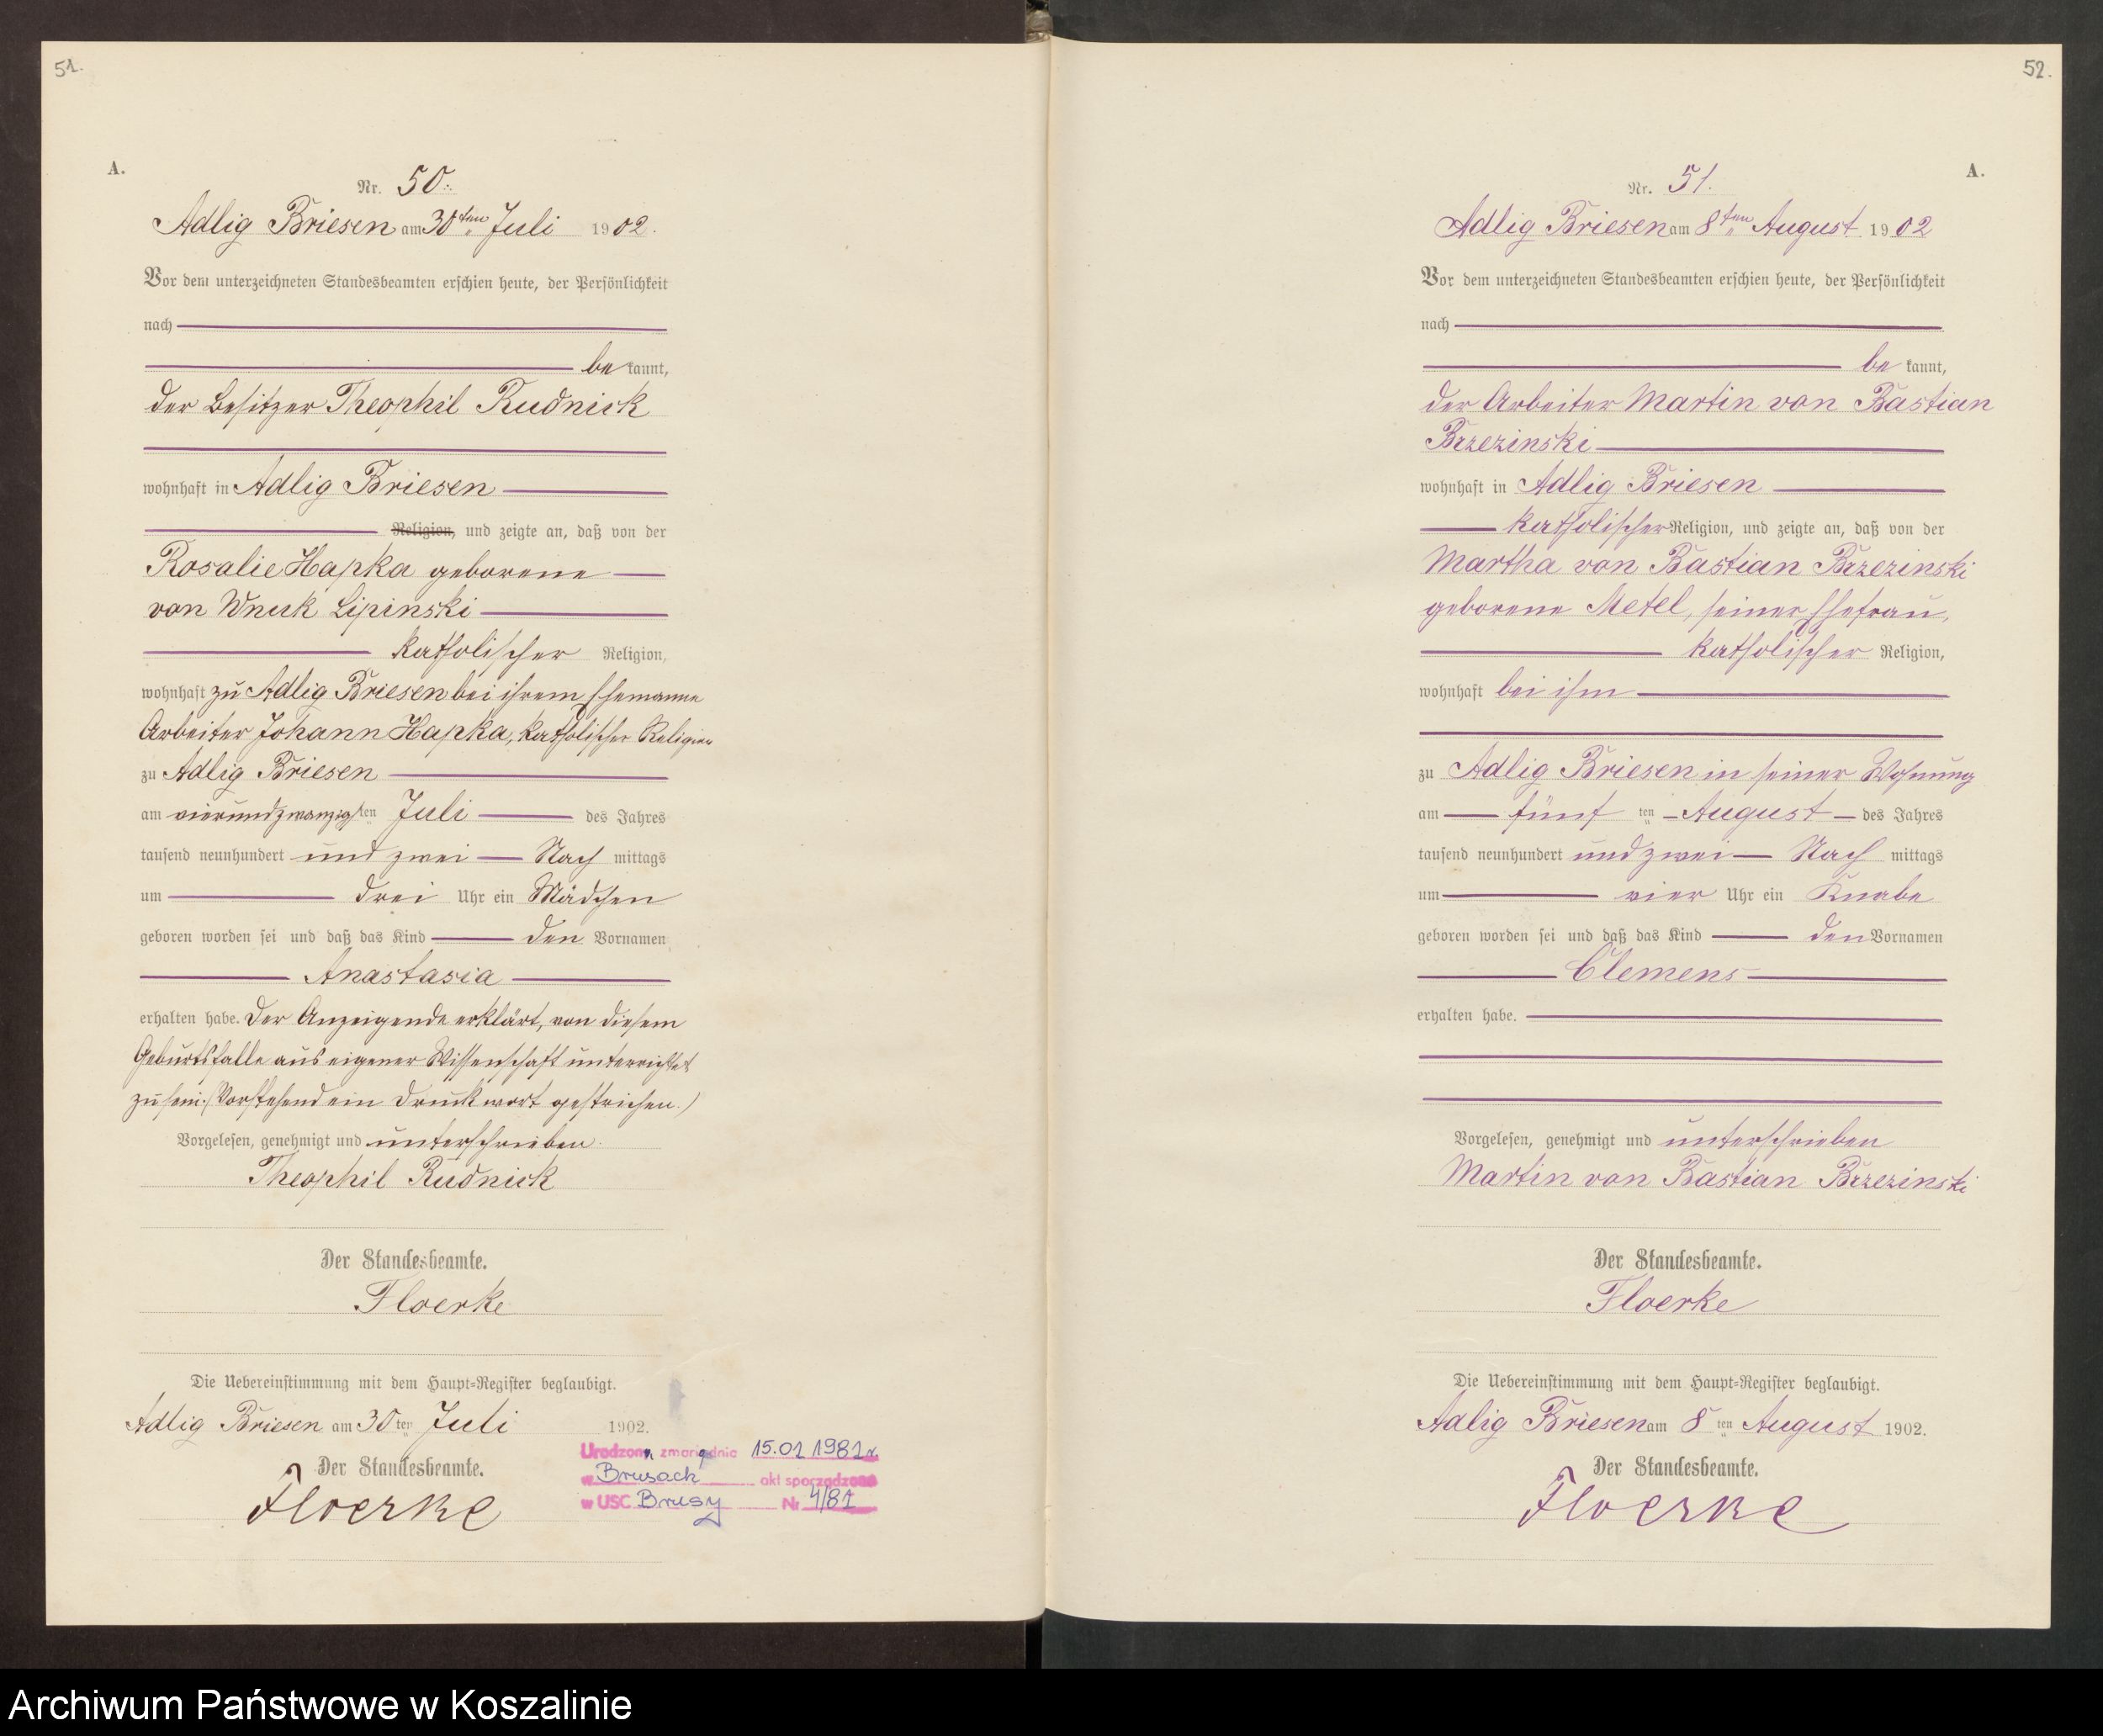 51.
A.
Nr. 50.
Adlig Briesen am 30ten Juli 1902.
Vor dem unterzeichneten Standesbeamten erschien heute, der Persönlichkeit
nach
be kannt,
der Besitzer Theophil Rudnick
wohnhaft in Adlig Briesen
Religion, und zeigte an, daß von der
Rosalie Hapka geborene
von Wnuk Lipinski
katholischer Religion,
wohnhaft zu Adlig Briesen bei ihrem Ehemanne
Arbeiter Johann Hapka, katholischer Religion
zu Adlig Briesen
am vierundzwanzigsten Juli des Jahres
tausend neunhundert und zwei Nach mittags
um drei Uhr ein Mädchen
geboren worden sei und daß das Kind den Vornamen
Anastasia
erhalten habe. Der Anzeigende erklärt, von diesem
Geburtsfalle aus eigener Wissenschaft unterrichtet
zu sein. (Vorstehend ein Druckwort gestrichen.)
Vorgelesen, genehmigt und unterschrieben.
Theophil Rudnick
Der Standesbeamte.
Floerke
Die Uebereinstimmung mit dem Haupt-Register beglaubigt.
Adlig Briesen am 30ten Juli 1902.
Der Standesbeamte.
Floerke
Urodzony zmarł dnia 15.01 1981 r
w Brusach akt sporządzono
w USC Brusy Nr 4/81
52.
A.
Nr. 51.
Adlig Briesen am 8ten August 1902
Vor dem unterzeichneten Standesbeamten erschien heute, der Persönlichkeit
nach
be kannt,
der Arbeiter Martin von Bastian
Brzezinski
wohnhaft in Adlig Briesen
katholischer Religion, und zeigte an, daß von der
Martha von Bastian Brzezinski
geborene Metel, seiner Ehefrau,
katholischer Religion,
wohnhaft bei ihm
zu Adlig Briesen in seiner Wohnung
am fünf ten August des Jahres
tausend neunhundert und zwei Nach mittags
um vier Uhr ein Knabe
geboren worden sei und daß das Kind den Vornamen
Clemens
erhalten habe.
Vorgelesen, genehmigt und unterschrieben
Martin von Bastian Brzezinski
Der Standesbeamte.
Floerke
Die Uebereinstimmung mit dem Haupt-Register beglaubigt.
Adlig Briesen am 8ten August 1902.
Der Standesbeamte.
Floerke
Archiwum Państwowe w Koszalinie